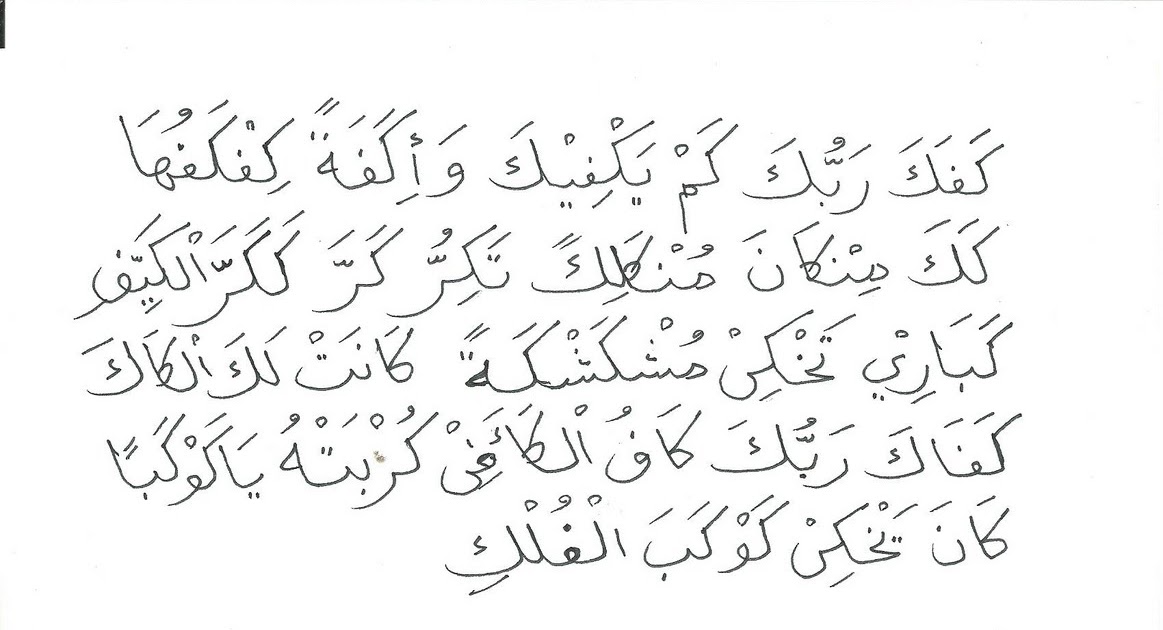 كَفَكَ رَبُّكَ كَمْ يَكْفِيْكَ وَأِكَفَةً كِفْكَفُهَا
لَكَ مِنْكَانَ مُنْكَلِكً تَكِرُّ كَرَّ كَكَرَّ الْكِيَّفِ
كَبَارِيْ تَحْكِىْ مُشْكَشْكَةً كَانَتْ لَكَ الْكَاكَ
كَفَاكَ رَبُّكَ كَافُ الْكَافِىْ كُرْبَتْهُ يَاكَوْكَبًا
كَانَ يَحْكِىْ كَوْكَبَ الْفُلْكِ